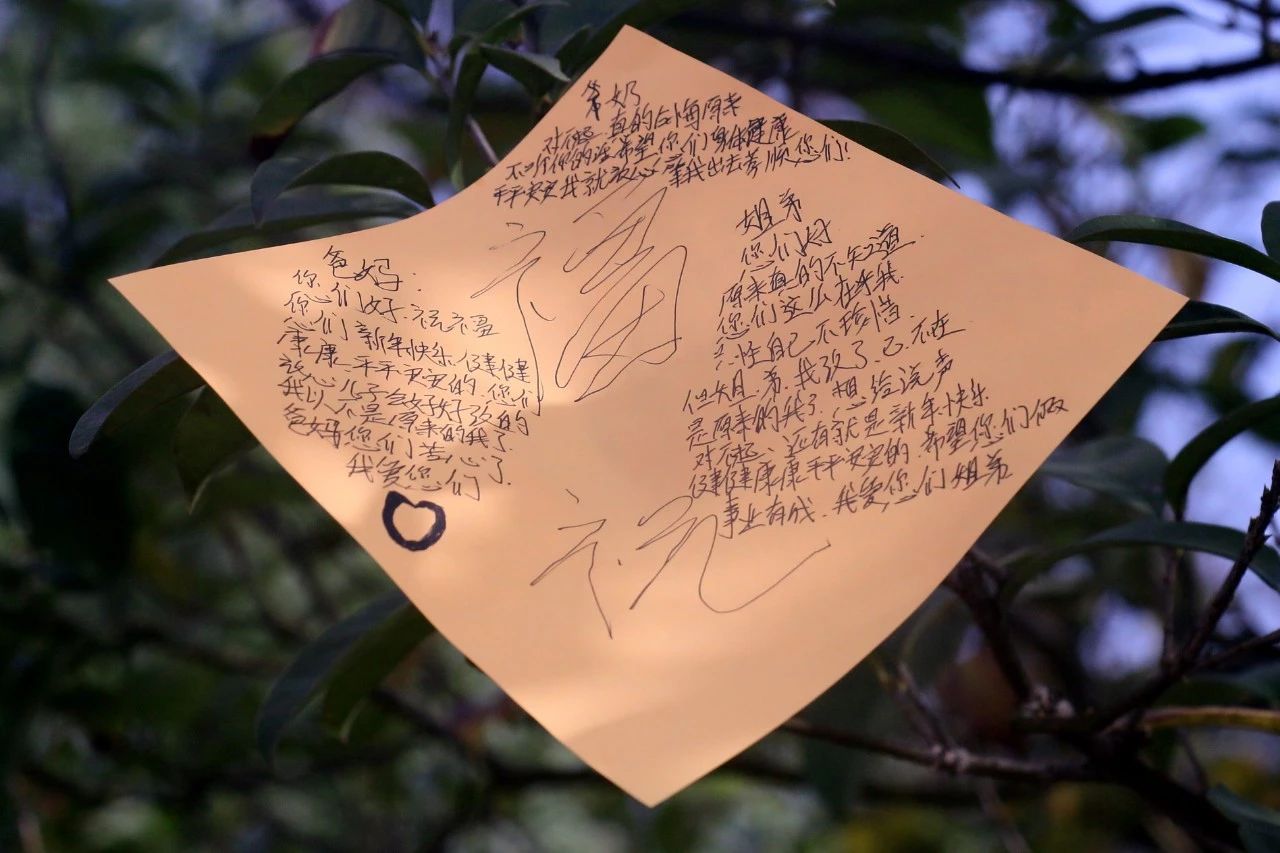 爷奶
对不起.真的后悔原来
不听你的话希望你们身体健康
平平安安我就放心.等我出去孝顺您们!
福
爸妈.
你们好.祝福
您们新年快乐.健健
康康.平平安安的.您们
放心儿子会好好改的
我以不是原来的我了.
爸妈你们苦心了.
我爱您们.
姐弟
你们好
原来真的不知道.
您们这么在乎我.
性自己不珍惜.
但姐.弟.我改了.已.不在
是原来的我了.想给说声
对不起.还有就是新年快乐
健健康康平平安安的.希望您们俩
事业有成.我爱您们姐弟
祝